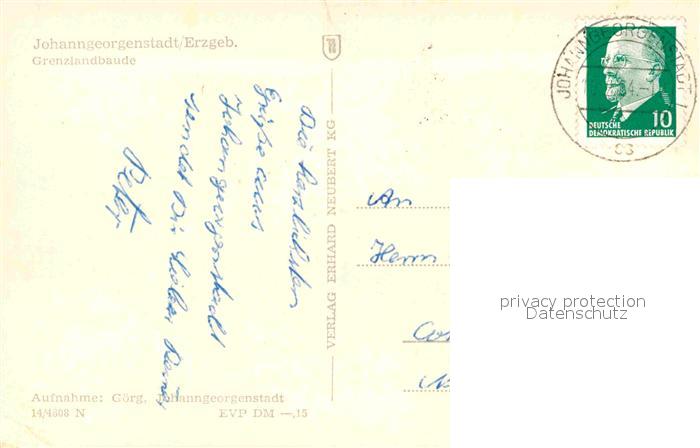 Johanngeorgenstadt/Erzgeb.
Grenzlandbaude
Die herzlichsten
Grüße aus
Johanngeorgenstadt
sendet Dir lieber
Peter
VERLAG ERHARD NEUBERT KG
JOHANNGEORGENSTADT 1
DEUTSCHE
DEMOKRATISCHE REPUBLIK
10
An
Herrn
privacy protection
Datenschutz
Aufnahme: Görg, Johanngeorgenstadt
14/4808 N EVP DM —,15